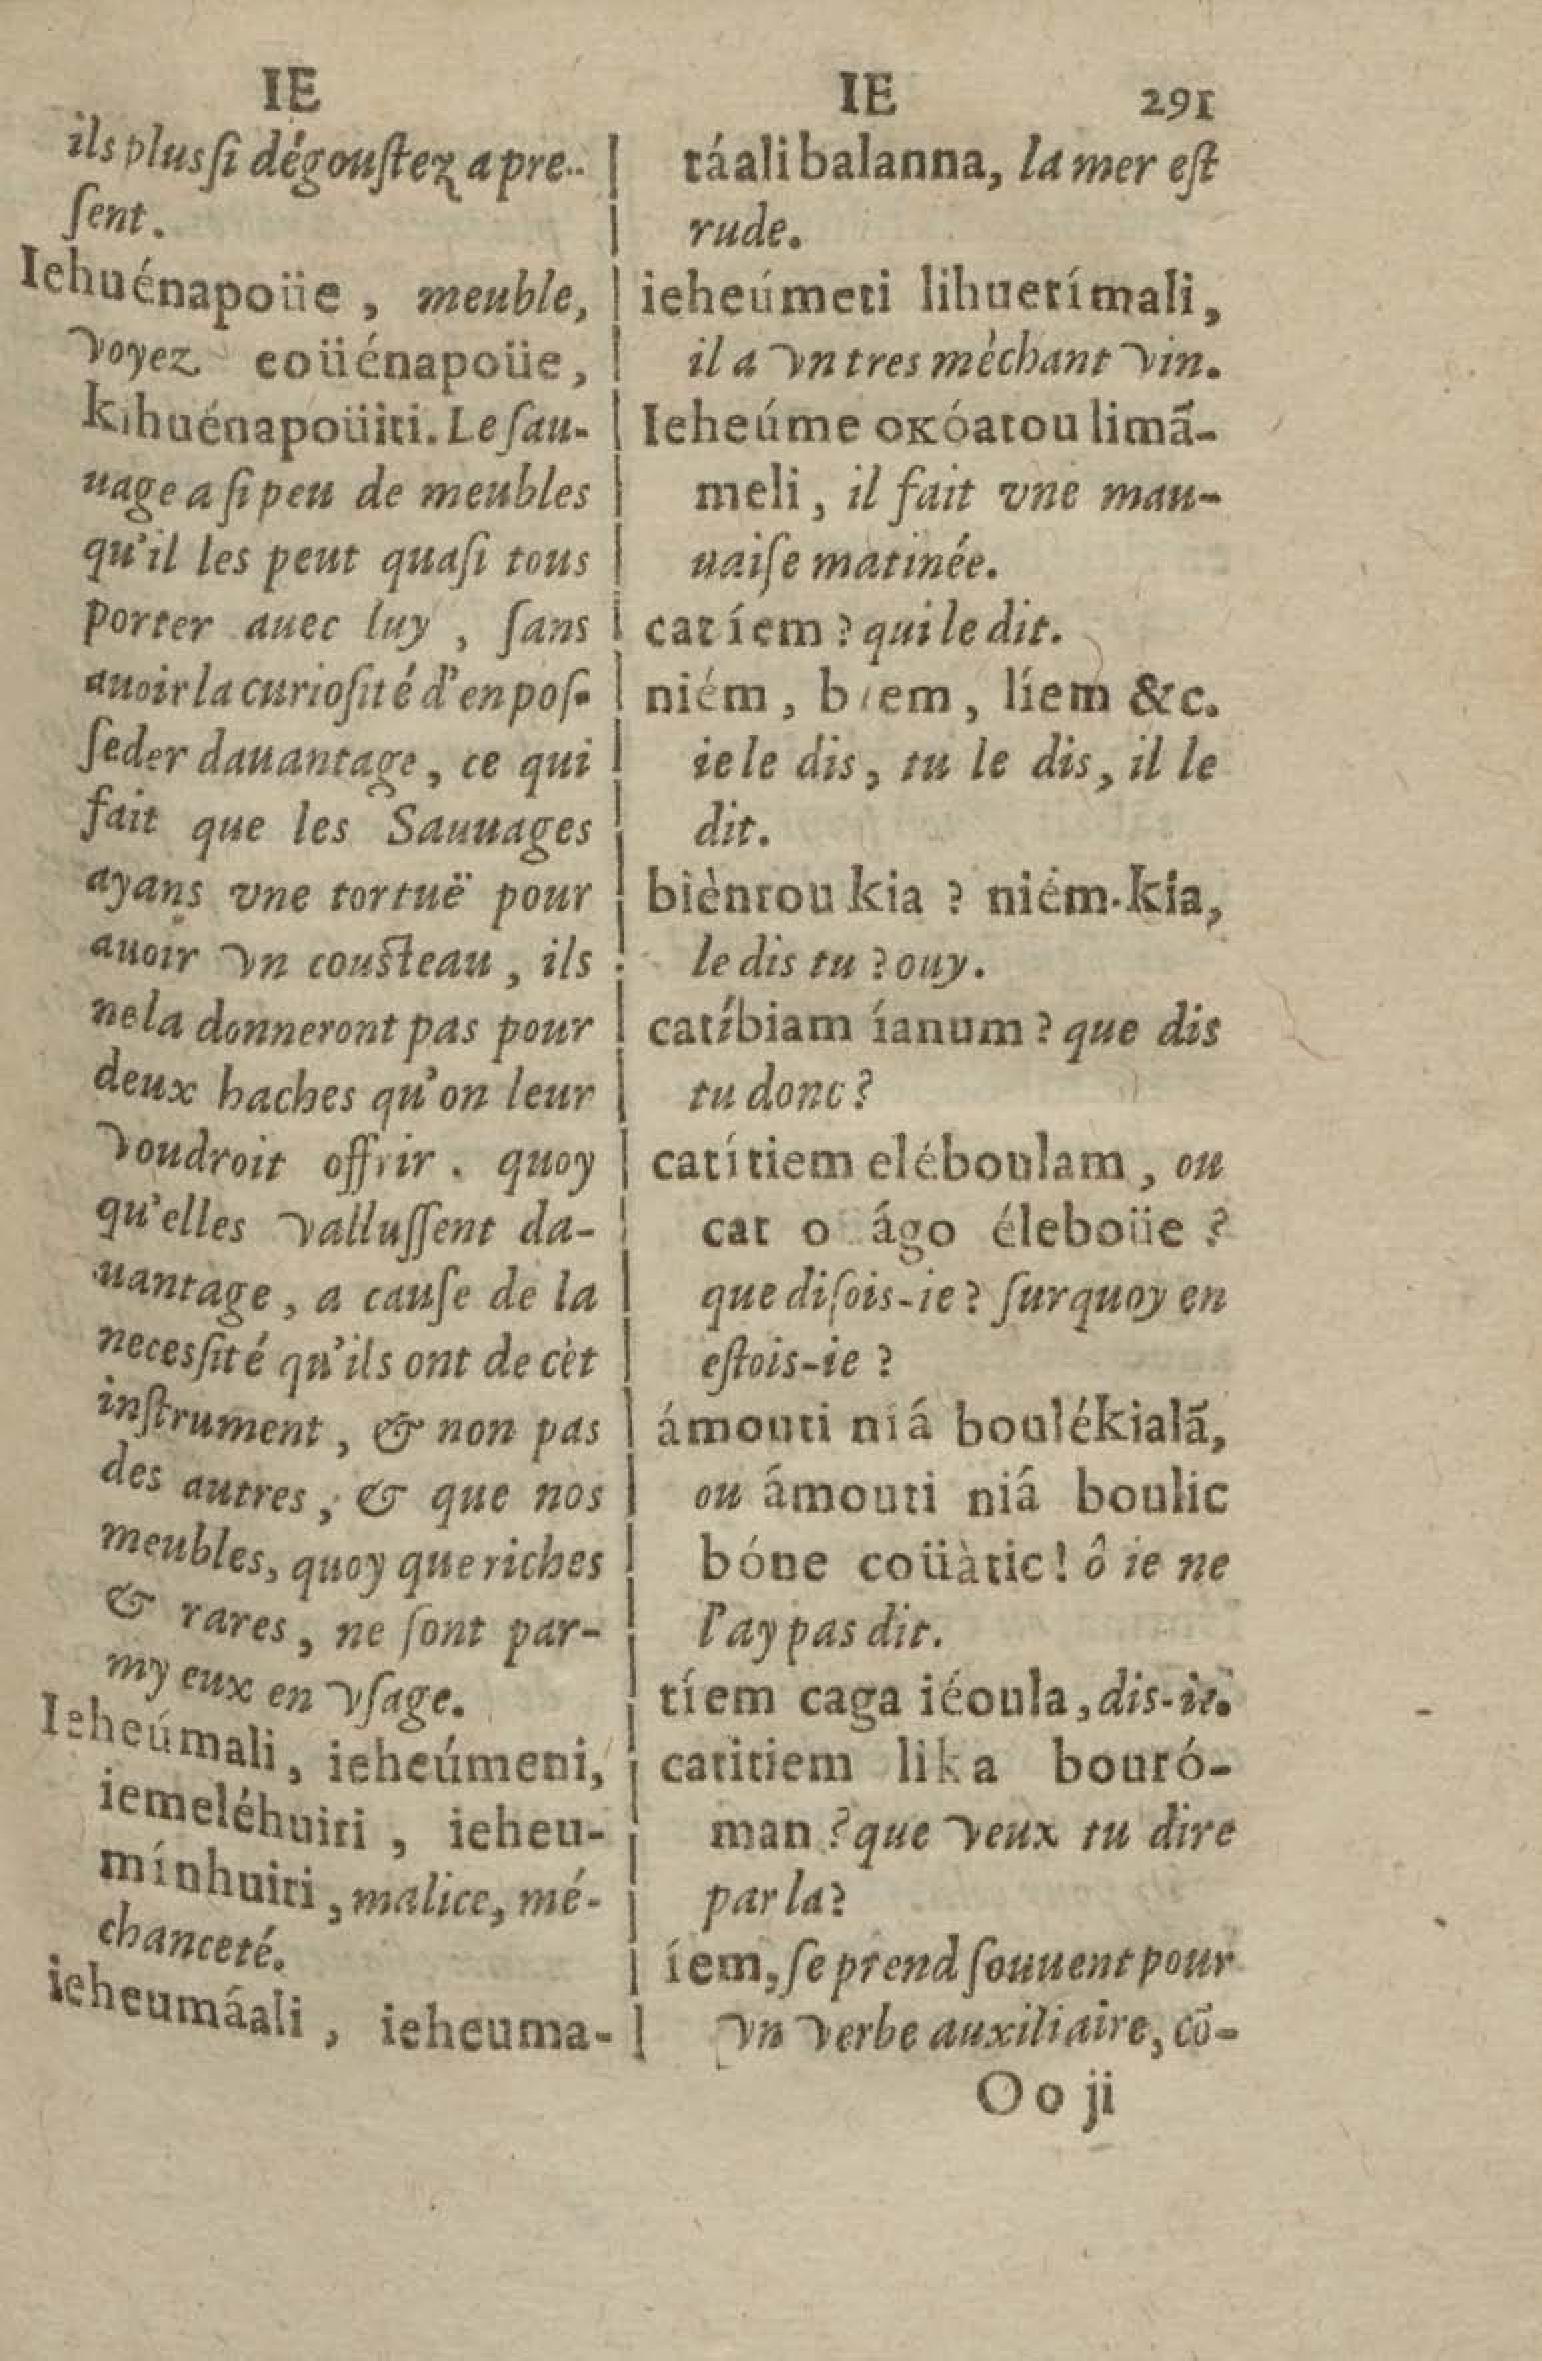 IE
ils plus ſi dégouſtez a pre-
ſent.
Iehuénapoüe, meuble,
voyez eoüénapoüe,
kihuénapoüiti. Le ſau-
uage a ſi peu de meubles
qu'il les peut quaſi tous
porter auec luy, ſans
auoir la curioſité d'en poſ-
ſeder dauantage, ce qui
fait que les Sauuages
ayans vne tortuë pour
auoir vn couſteau, ils
ne la donneront pas pour
deux haches qu'on leur
voudroit offrir. quoy
qu'elles valluſſent da-
uantage, a cauſe de la
neceſſité qu'ils ont de cèt
inſtrument, & non pas
des autres, & que nos
meubles, quoy que riches
& rares, ne ſont par-
my eux en vſage.
Ieheúmali, ieheúmeni,
iemeléhuiti, ieheu-
mínhuiti, malice, mé-
chanceté.
ieheumáali, ieheuma-
IE 291
táali balanna, la mer eſt
rude.
ieheúmeti lihuetímali,
il a vn tres mèchant vin.
Ieheúme oκóatou limã-
meli, il fait vne mau-
uaiſe matinée.
cat íem? qui le dit.
niém, biem, líem &c.
ie le dis, tu le dis, il le
dit.
bièntou kia? niém-kia,
le dis tu? ouy.
catíbiam íanum? que dis
tu donc?
catítiem eléboulam, ou
cat o ágo éleboüe?
que diſois-ie? ſur quoy en
eſtois-ie?
ámouti niá boulékialã,
ou ámouti niá boulic
bóne coüàtic! ô ie ne
l'ay pas dit.
tíem caga iéoula, dis-ie.
catitiem lika bouró-
man? que veux tu dire
par la?
íem, ſe prend ſouuent pour
vn verbe auxiliaire, cõ-
Oo ij